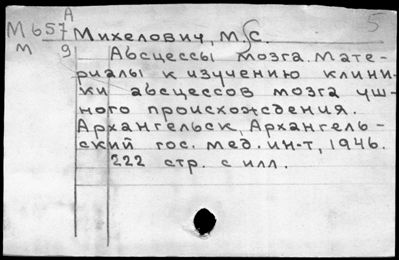 А
М657 Михелович, М.С. 5
м 9 Абсцессы мозга. Мате-
риалы к изучению клини-
ки абсцессов мозга уш-
ного происхождения.
Архангельск, Архангель-
ский гос. мед. ин-т, 1946.
222 стр. с илл.